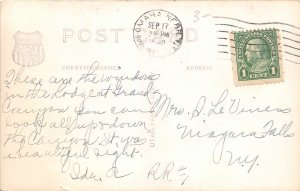 OMAHA, NEBR.
SEP 17
POST CARD
CORRESPONDENCE
ADDRESS
1 CENT 1
These are the windows
in the Lodge at Grand
Canyon you can
look all up & down
the Canyon. It was
a beautiful sight.
Ida. A
Mrs. A. Le Viness
Niagara Falls
N.Y.
R.R. 1